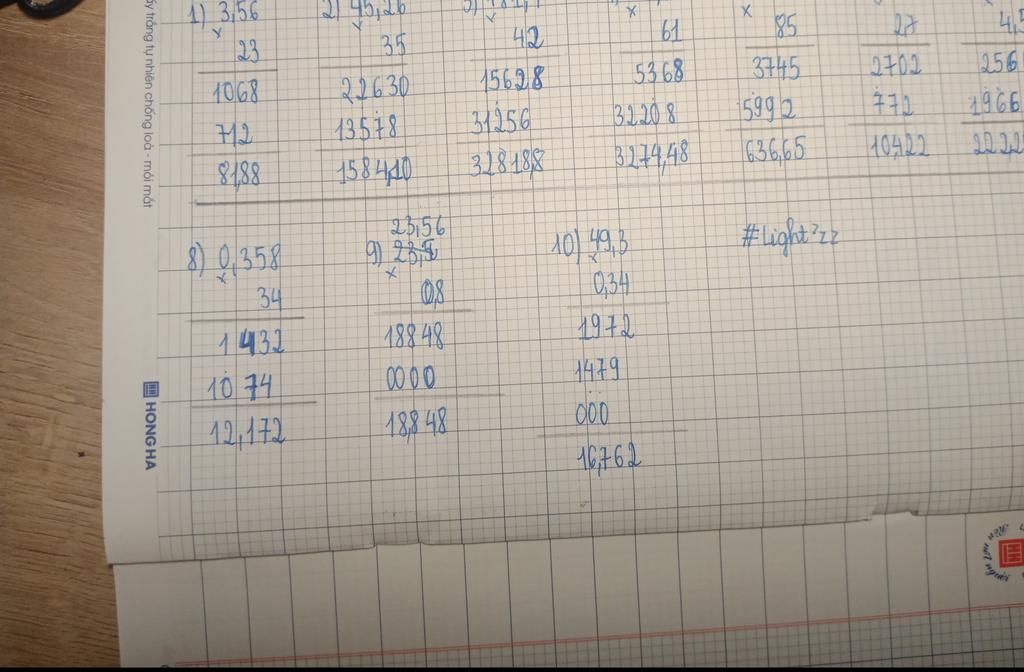 ấy trắng tự nhiên chống loá - mỏi mắt
1) 3,56
x
23
1068
712
81,88
2) 45,26
x
35
22630
13578
1584,10
3)
x
42
15628
31256
3281,88
x
61
5368
32208
3274,48
x
85
3745
5992
636,65
27
2702
772
104,22
4,5
256
1966
222,2
8) 0,358
x
34
1432
1074
12,172
23,56
9) 23,5
x
0,8
18848
0000
18,848
10) 49,3
x
0,34
1972
1479
000
16,762
#Lightzzz
HONG HA